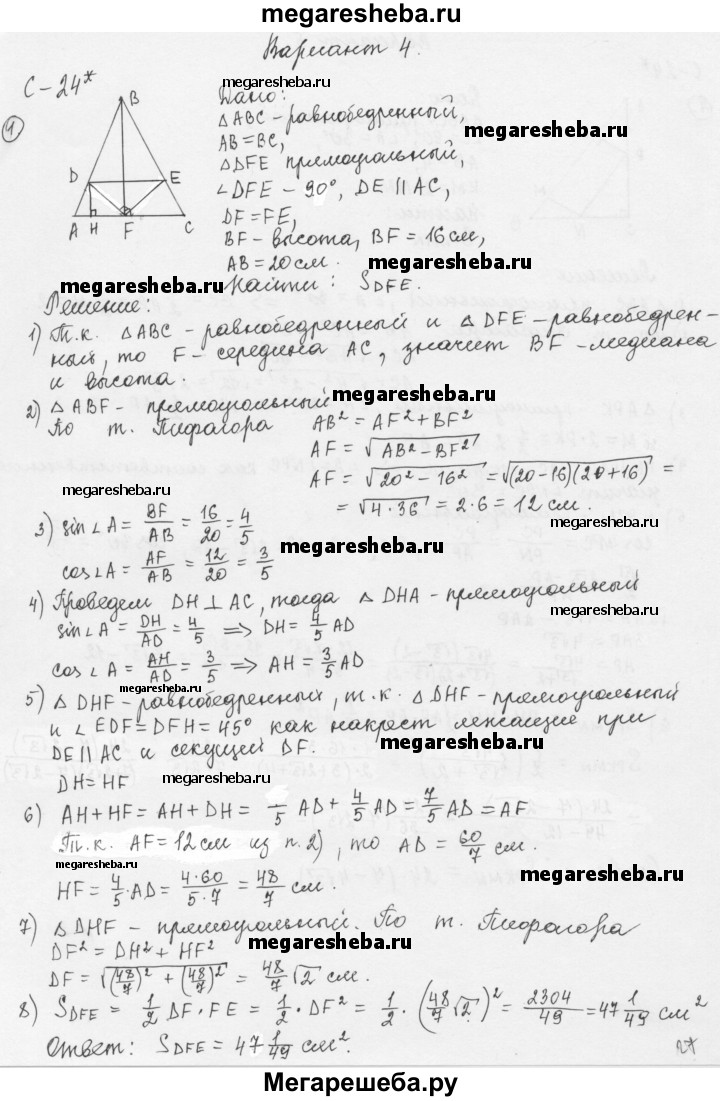 megaresheba.ru
Вариант 4.
С-24*
1
B
D
E
A H F C
Дано:
megaresheba.ru
△ABC - равнобедренный,
AB=BC,
megaresheba.ru
△DFE прямоугольный,
∠DFE - 90°, DE ∥ AC,
DF=FE,
BF - высота, BF=16см,
megaresheba.ru
AB=20см.
Найти: S_DFE.
megaresheba.ru
megaresheba.ru
Решение:
1) Т.к. △ABC - равнобедренный и △DFE - равнобедрен-
ный, то F - середина AC, значит BF - медиана
и высота.
megaresheba.ru
2) △ABF - прямоугольный
По т. Пифагора AB² = AF² + BF²
AF = √(AB² - BF²)
AF = √(20² - 16²) = √((20-16)(20+16)) =
= √(4·36) = 2·6 = 12 см.
megaresheba.ru
3) sin∠A = BF/AB = 16/20 = 4/5
megaresheba.ru
cos∠A = AF/AB = 12/20 = 3/5
4) Проведем DH ⊥ AC, тогда △DHA - прямоугольный
sin∠A = DH/AD = 4/5 ⟹ DH = 4/5 AD
megaresheba.ru
cos∠A = AH/AD = 3/5 ⟹ AH = 3/5 AD
megaresheba.ru
5) △DHF - равнобедренных, т.к. △DHF - прямоугольный
и ∠EDF = DFH = 45° как накрест лежащие при
DE ∥ AC и секущий DF.
megaresheba.ru
megaresheba.ru
DH = HF
6) AH+HF = AH+DH = /5 AD + 4/5 AD = 7/5 AD = AF
Т.к. AF=12см из п.2), то AD = 60/7 см.
megaresheba.ru
megaresheba.ru
HF = 4/5·AD = 4·60/5·7 = 48/7 см.
7) △DHF - прямоугольный. По т. Пифагора
DF² = DH² + HF²
megaresheba.ru
DF = √((48/7)² + (48/7)²) = 48/7 √2 см.
megaresheba.ru
8) S_DFE = 1/2 DF·FE = 1/2·DF² = 1/2·(48/7 √2)² = 2304/49 = 47 1/49 см²
Ответ: S_DFE = 47 1/49 см².
megaresheba.ru
27
Мегарешеба.ру